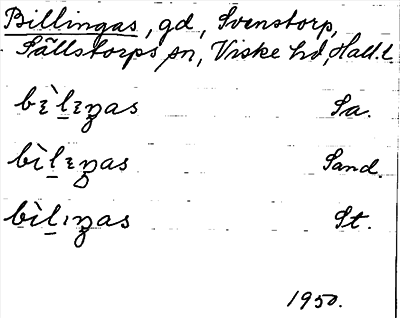 Billingas, gd, Svenstorp,
Sällstorps sn, Viske hd, Hall. l.
bɛ̀lɛŋas Sa.
bìlɛŋas Sand.
bìlıŋas St.
1950.